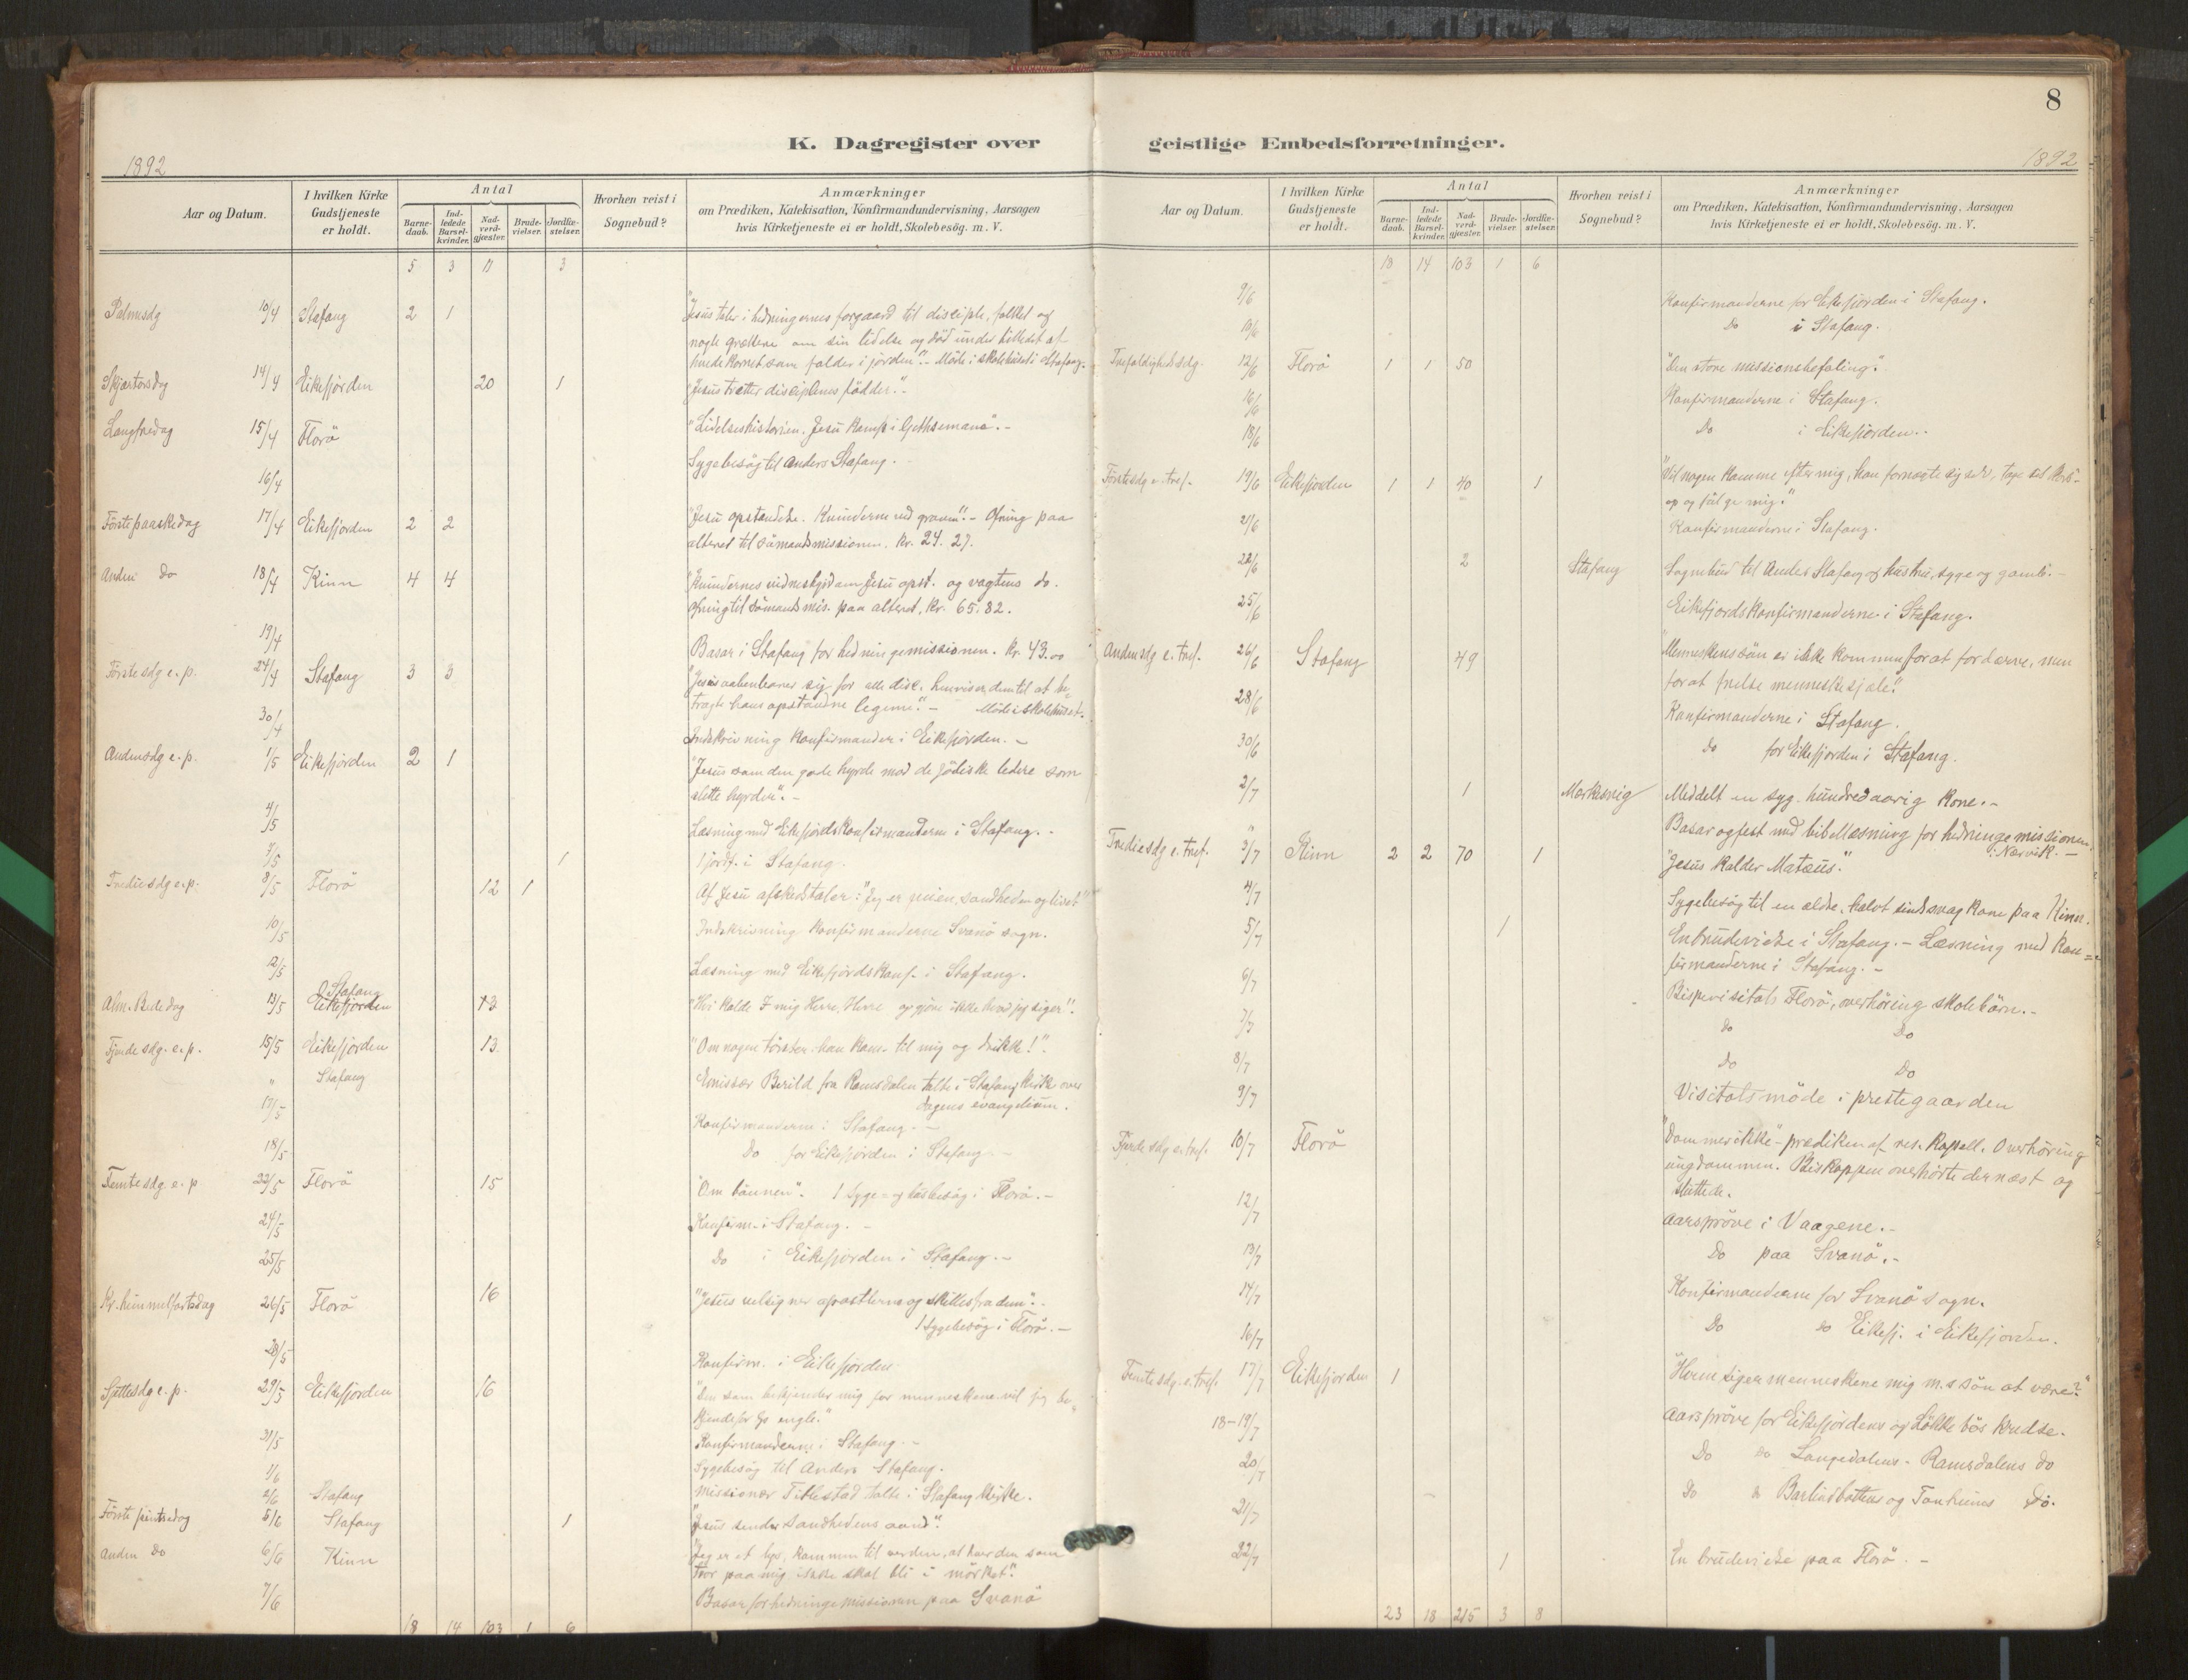 8
K. Dagregister over geistlige Embedsforretninger.
1892
1892
Aar og Datum.
I hvilken Kirke Gudstjeneste er holdt.
Antal
Barne-daab.
Ind-ledede Barsel-kvinder.
Nad-verd-gjæster.
Brude-vielser.
Jordfæ-stelser.
Hvorhen reist i Sognebud?
Anmærkninger
om Prædiken, Katekisation, Konfirmandundervisning, Aarsagen
hvis Kirketjeneste ei er holdt, Skolebesög. m. V.
5 3 11 3
Palmesdg 10/4 Stafang 2 1 "Jesus taler i hedningernes forgaard til disciple, folket og
nogle grækere om sin lidelse og död under billedet af
hvedekornet som falder i jorden". - Möde i skolehuset i Stafang.
Skjærtorsdag 14/4 Eikefjorden 20 1 "Jesus tvætter disciplenes födder." -
Langfredag 15/4 Florö "Lidelseshistorien. Jesu kamp i Gethsemane". -
16/4 Sygebesög til Anders Stafang. -
Förste paaskedag 17/4 Eikefjorden 2 2 "Jesu opstandelse. Kvinderne ved graven". - Ofring paa
alteret til sömandsmissionen. Kr. 24.27.
Anden Do 18/4 Kinn 4 4 "Kvindernes vidnesbyrd om Jesu opst. og vagtens do.
Ofring til Sömandsmis. paa alteret, Kr. 65.82.
19/4 Basar i Stafang for hedningemissionen. Kr. 43.00
Förstesdg e. p. 24/4 Stafang 3 3 "Jesus aabenbarer sig for alle disc. henviser dem til at be-
tragte hans opstandne legeme". - Möde i skolehuset.
30/4 Indskrivning konfirmander i Eikefjorden. -
Andensdg e. p. 1/5 Eikefjorden 2 1 "Jesus som den gode hyrde mod de jödiske ledere som
slette hyrder". -
4/5 Læsning med Eikefjordskonfirmanderne i Stafang. -
7/5 1 1 jordf. i Stafang.
Trediesdg e. p. 8/5 Florö 12 1 Af Jesu afskedstaler: "Jeg er veien, sandheden og livet"
10/5 Indskrivning konfirmanderne Svanö sogn.
12/5 Læsning med Eikefjordskonf. i Stafang.
Alm. Bededag 13/5 Stafang Eikefjorden 13 "Hvi kalde I mig Herre, Herre og gjöre ikke hvad jeg siger".
Fjerdesdg. e. p. 15/5 Eikefjorden 13 "Om nogen törster han kom. til mig og drikke!".
" Stafang Emissær Berild fra Ramsdalen talte i Stafang kirke over
dagens evangelium.
17/5 Konfirmanderne i Stafang. -
18/5 Do for Eikefjorden i Stafang. -
Femtesdg e. p 22/5 Florö 15 "Om bönnen". 1 Syge- og husbesög i Florö. -
24/5 Konfirm. i Stafang. -
25/5 Do i Eikefjorden i Stafang. -
Kr. himmelfartsdag 26/5 Florö 16 "Jesus velsigner apostlerne og skilles fra dem". -
1 Sygebesög i Florö. -
28/5 Konfirm. i Eikefjorden
Sjettesdg e. p. 29/5 Eikefjorden 16 "Den som bekjender mig for menneskene vil jeg be-
kjende for Gs engle."
31/5 Konfirmanderne i Stafang. -
1/6 Sygebesög til Anders Stafang.
2/6 Stafang Missionær Titlestad talte i Stafang Kirke.
Förste pintsedag 5/6 Stafang 1 "Jesus sender Sandhedens aand".
Anden Do 6/6 Kinn "Jeg er et lys, kommen til verden, at hver den som
tror paa mig ikke skal bli i mörket".
7/6 Basar for hedningemissionen paa Svanö
18 14 103 1 6
Aar og Datum.
I hvilken Kirke Gudstjeneste er holdt.
Antal
Barne-daab.
Ind-ledede Barsel-kvinder.
Nad-verd-gjæster.
Brude-vielser.
Jordfæ-stelser.
Hvorhen reist i Sognebud?
Anmærkninger
om Prædiken, Katekisation, Konfirmandundervisning, Aarsagen
hvis Kirketjeneste ei er holdt, Skolebesög. m. V.
18 14 103 1 6
9/6 Konfirmanderne for Eikefjorden i Stafang.
10/6 Do i Stafang.
Trefoldighedssdg. 12/6 Florö 1 1 50 "Den store missionsbefaling".
16/6 Konfirmanderne i Stafang.
18/6 Do i Eikefjorden. -
Förstesdg e. tref. 19/6 Eikefjorden 1 1 40 1 "Vil nogen komme efter mig, han fornegte sig selv, tage sit kors
op og fölge mig."
21/6 Konfirmanderne i Stafang.
22/6 2 Stafang Sognebud til Anders Stafang og hustru, syge og gamle. -
25/6 Eikefjordskonfirmanderne i Stafang.
Andensdg e. tref. 26/6 Stafang 49 "Menneskens sön er ikke kommen for at fordærve, men
for at frelse menneskesjæle".
28/6 Konfirmanderne i Stafang.
30/6 Do for Eikefjorden i Stafang.
2/7 1 Meddelt en syg. hundredaarig kone. -
Basar og fest med bibellæsning for hedningemissionen
i Nærvik. -
Trediesdg e. tref. 3/7 Kinn 2 2 70 1 "Jesus kalder Matæus."
4/7 Sygebesög til en ældre, halvt sindssvag kone paa Kinn.
5/7 1 En brudevielse i Stafang. - Læsning med kon-
firmanderne i Stafang. -
6/7 Bispevisitats Florö, overhöring skolebörn. -
7/7 Do Do
8/7 Do Do
9/7 Visitatsmöde i prestegaarden
Fjerdesdg e. tref. 10/7 Florö "Dom mer ikke" - prædiken af res. kapell. Overhöring
ungdommen. Biskoppen overhörte dernæst og
sluttede.
12/7 Aarspröve i Vaagene. -
13/7 Do paa Svanö. -
14/7 Konfirmanderne for Svanö sogn.
16/7 Do do Eikefj. i Eikefjorden.
Femtesdg. e. tref. 17/7 Eikefjorden 1 "Hvem siger menneskene mig m. s sön at være?"
18-19/7 Aarspröve for Eikefjordens og Lökkebös kredse.
20/7 Do do Langedalens - Ramsdalens do
21/7 Do do Barlindbottens og Tonheims Do.
22/7 1 En brudevielse paa Florö. -
23 18 215 3 8